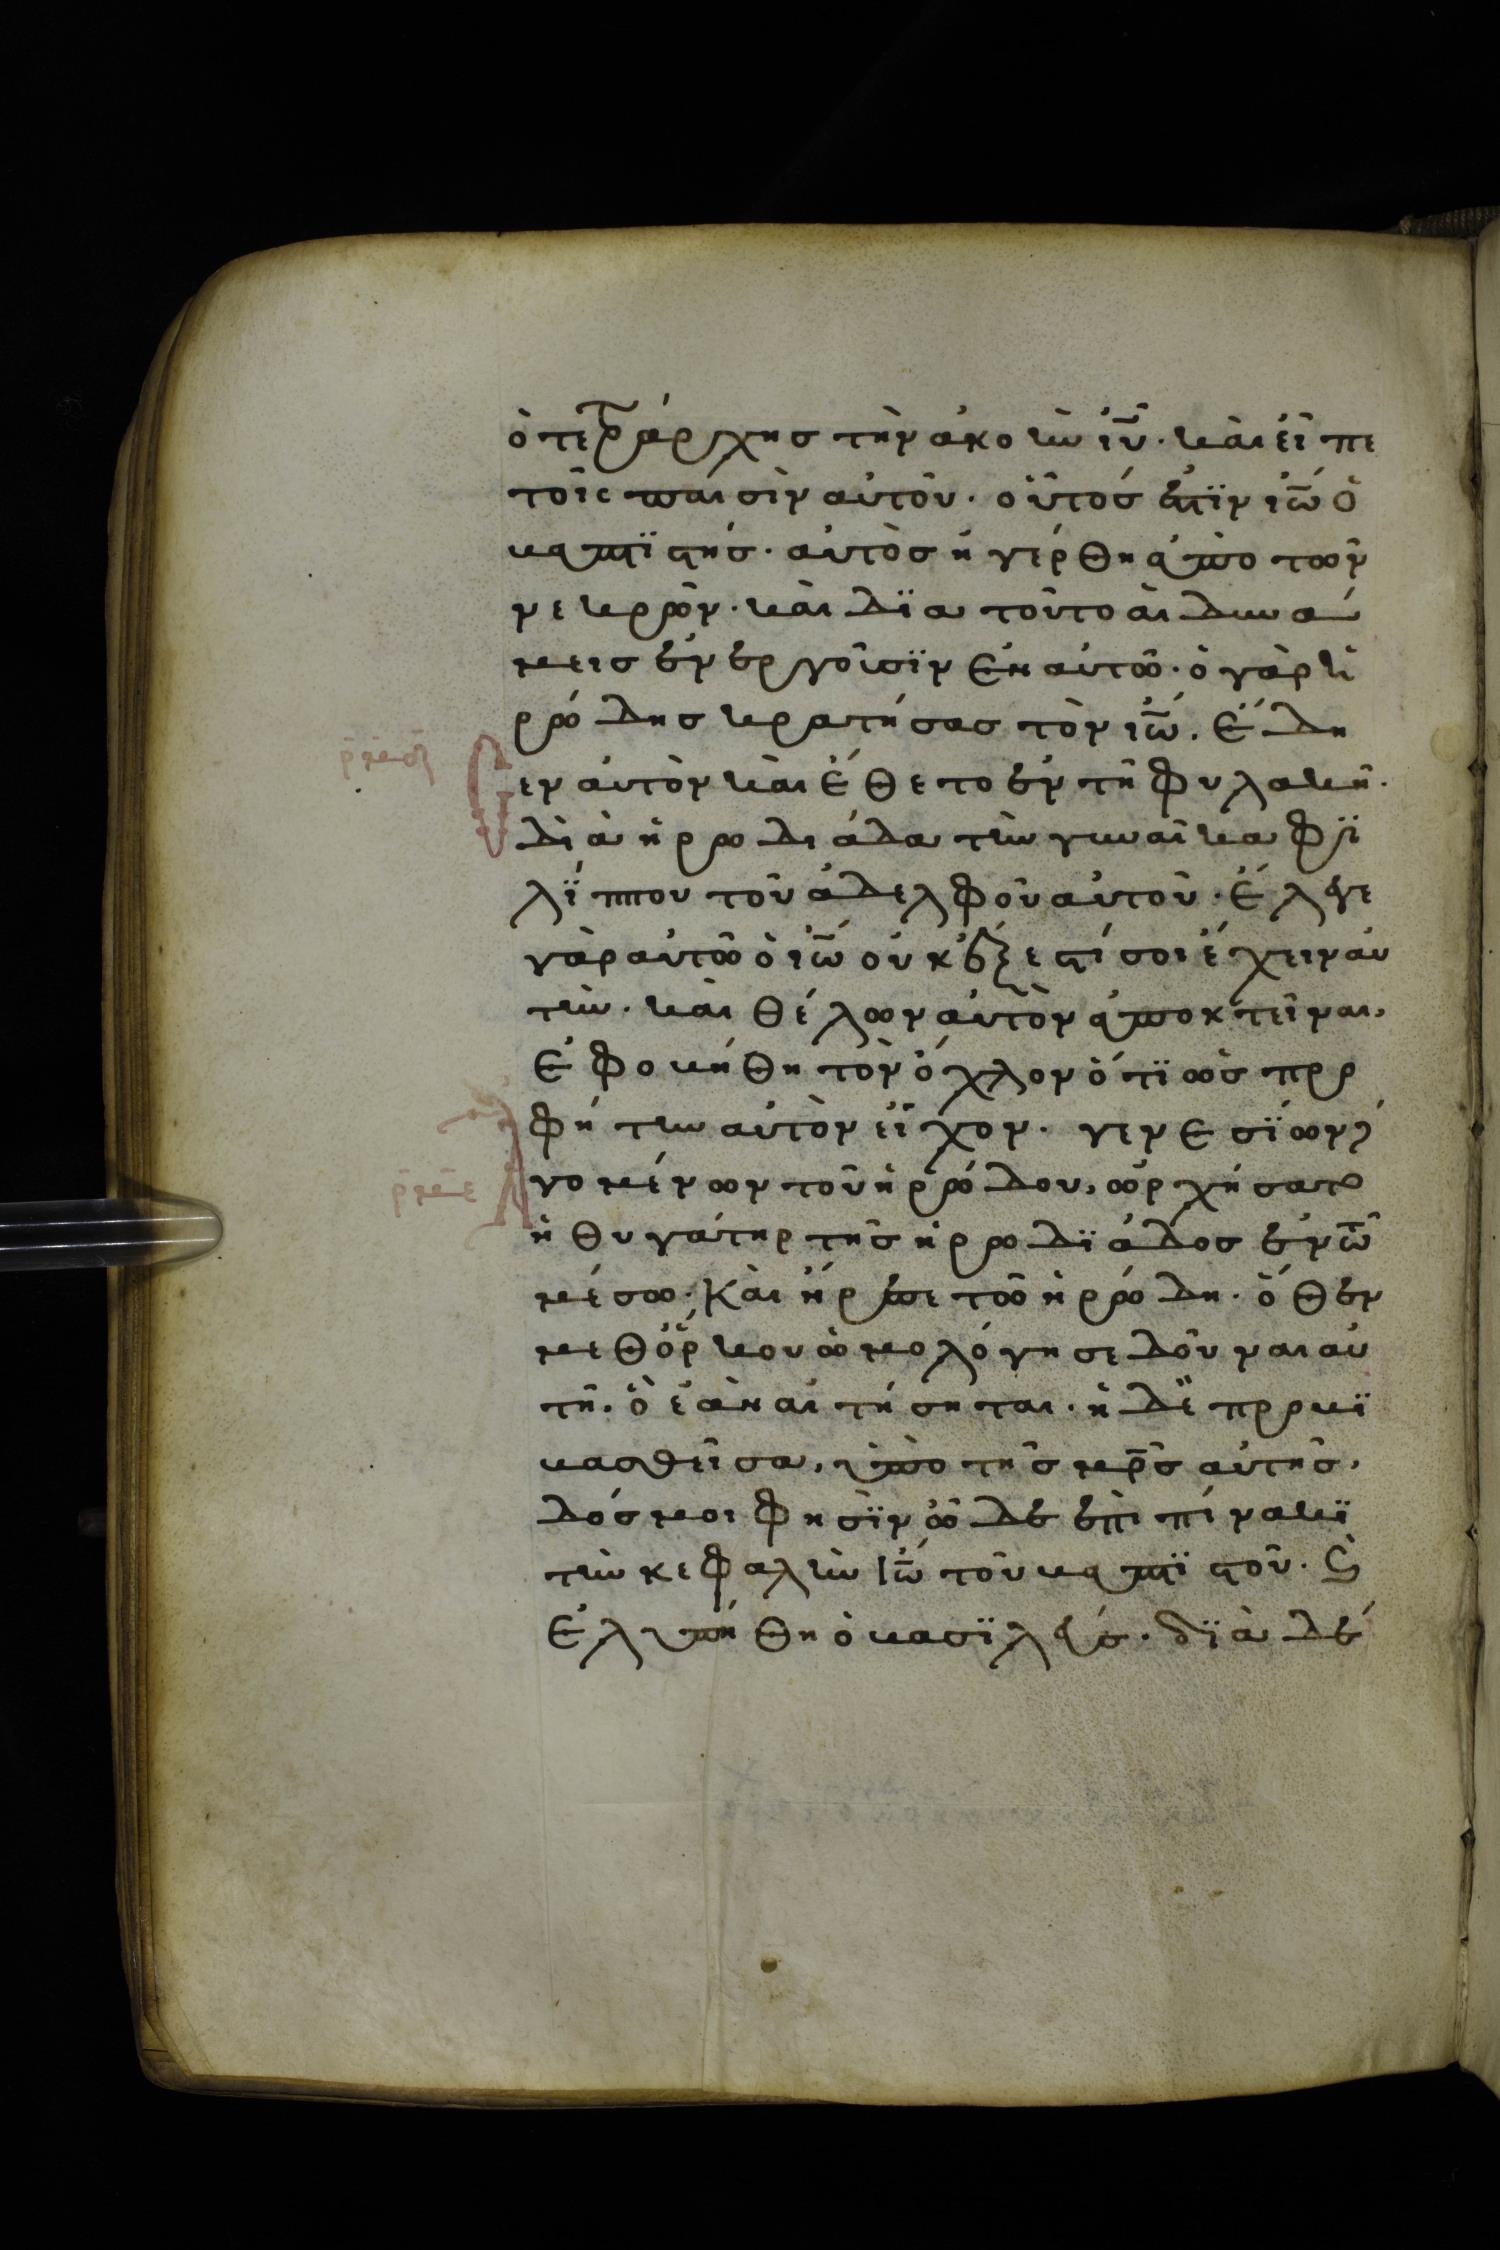 ὁ τετράρχησ τὴν ἀκοὴν ἰῦ· καὶ εἶπε
τοῖσ παισὶν αὐτοῦ· οὗτόσ ἐστϊν ἰῶ ὁ
βαπτϊστήσ· αὐτὸσ ἠγέρθη ἀπὸ τῶν
νεκρῶν· καὶ δϊα τοῦτο ἁι δυνά
μεισ ἐνεργοῦσϊν ἐν αὐτῶ· ὁ γὰρ ἡ
ρώδησ κρατήσασ τὸν ἰῶ. ἔδη
εν αὐτὸν καὶ ἔθετο ἐν τῆ φυλακῆ·
διὰ ἡρωδιάδα τὴν γυναῖκα φϊ
λΐππου τοῦ ἀδελφοῦ αὐτοῦ· ἔλεγε
γὰρ αὐτῶ ὁ ἰῶ οὐκ ἔξεστί σοι ἔχειν αὐ
τήν· καὶ θέλων αὐτὸν ἀποκτεῖναι,
ἐφοβήθη τὸν ὄχλον ὅτϊ ὡσ προ
φήτην αὐτὸν εἶχον· γενεσΐων
γομένων τοῦ ἡρώδου, ὠρχήσατο
ἡ θυγάτηρ τῆσ ἡρωδϊάδοσ ἐν τῶ
μέσω· καὶ ἤρεσε τῶ ἡρώδη· ὅθεν
μεθ ὅρκου ὡμολόγησε δοῦναι αὐ
τῆ. ὃ ἐὰν αἰτήσηται· ἡ δὲ προβϊ
βασθεῖσα, ὑπὸ τῆσ μρ̅σ αὐτῆσ,
δόσ μοι φησϊν ὧδε ἐπὶ πίνακϊ
τὴν κεφαλὴν ἰῶ τοῦ βαπτϊστοῦ. ϗ
ἐλυπήθη ὁ βασϊλεύσ· δϊὰ δὲ